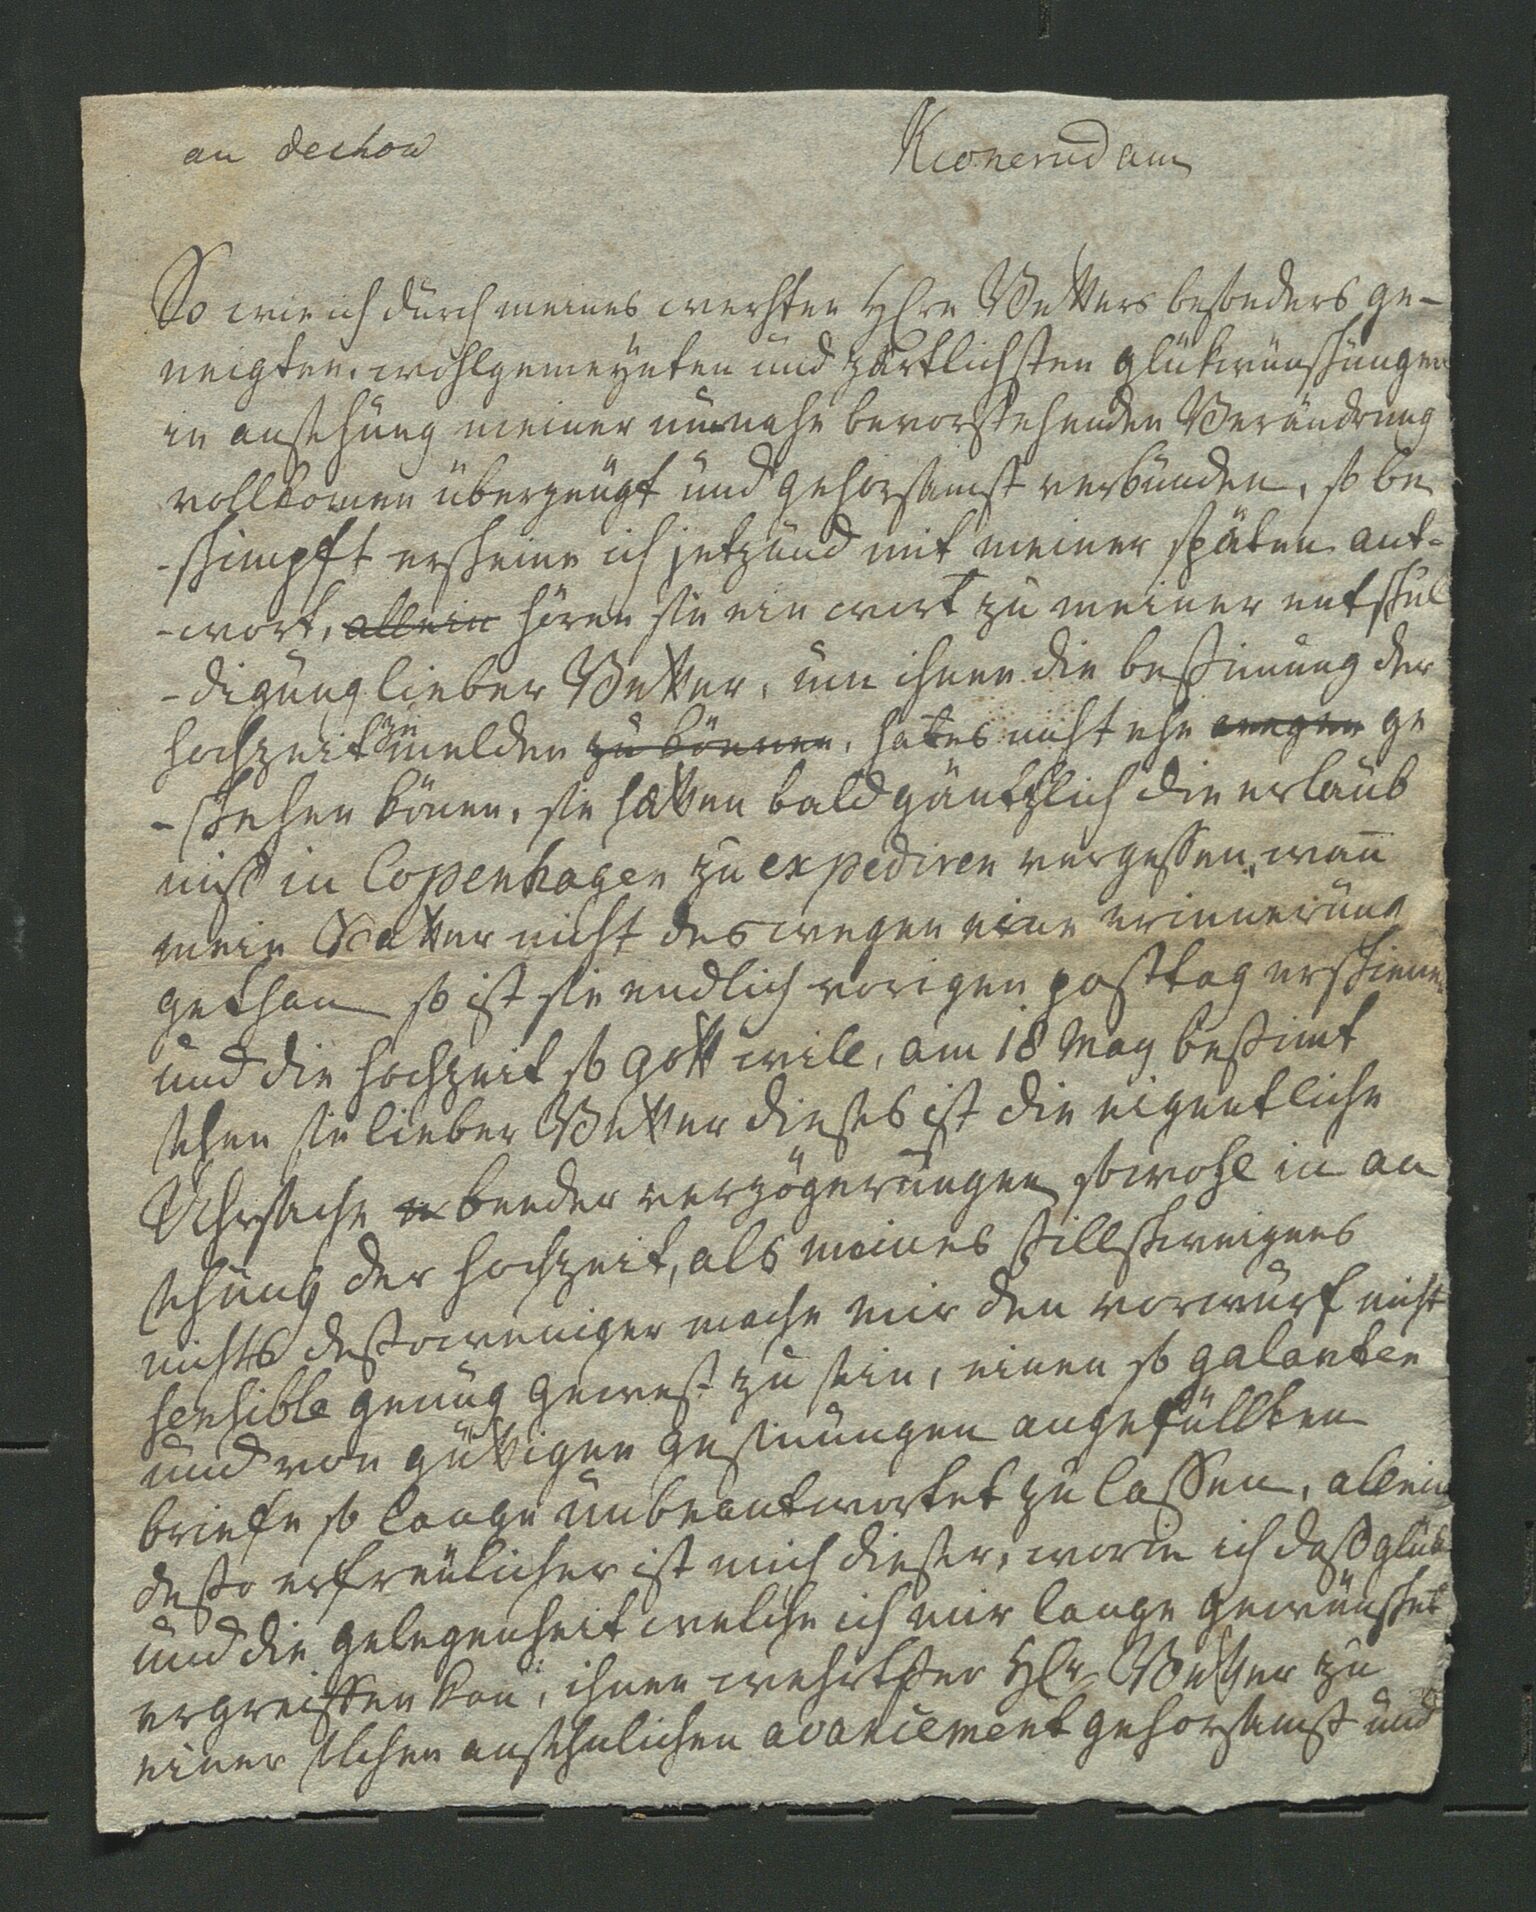 an dechow
Kronerud am
So wie ich durch meines werhten Hhrn Vetters besonders ge-
neigten, wohlgemeynten und zärtlichsten glükwünshungen
in ansehung meiner nu nahe bevorstehenden Verändrung
vollkomen überzeugt und gehorsamst verbunden, so be
-shimpft ersheine ich jetzund mit meiner späten ant-
-wort, allein hören sie ein wort zu meiner entshul
-digung lieber Vetter, um ihnen die bestimung der
hochzeit zu melden zu können, hat es nicht ehe wegen ge
-shehen könen, sie hätten bald gäntzlich die erlaub
niss in Copenhagen zu expediren vergessen, wan̄
mein Vatter nicht deswegen eine erinnerung
gethan so ist sie endlich vorigen posttag ershienen
und die hochzeit so gott will, am 18 May bestimt
sehen sie lieber Vetter dieses ist die eigentliche
Uhrsache beeder verzögerungen sowohl in an
sehung der hochzeit, als meines stillshweigens
nichts destoweniger mache mir den vorwurf nicht
sensible genug gewest zu sein, einen so galanten
und von güttigen gesinungen angefüllten
briefe so lange unbeantwortet zu lassen, allein
desto erfreulicher ist mich dieser, worin ich dass glük
und die gelegenheit welche ich mir lange gewünshet
ergreiffen kan̄, ihnen wehrtster Hhr Vetter zu
einer solchen ansehnlichen avancement gehorsamst und